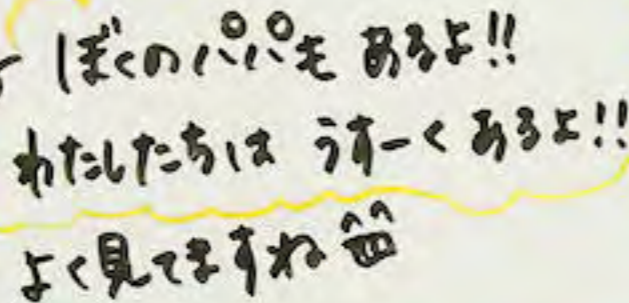 ぼくのパパも あるよ!!
わたしたちは うすーく あるよ!!
よく見てますね